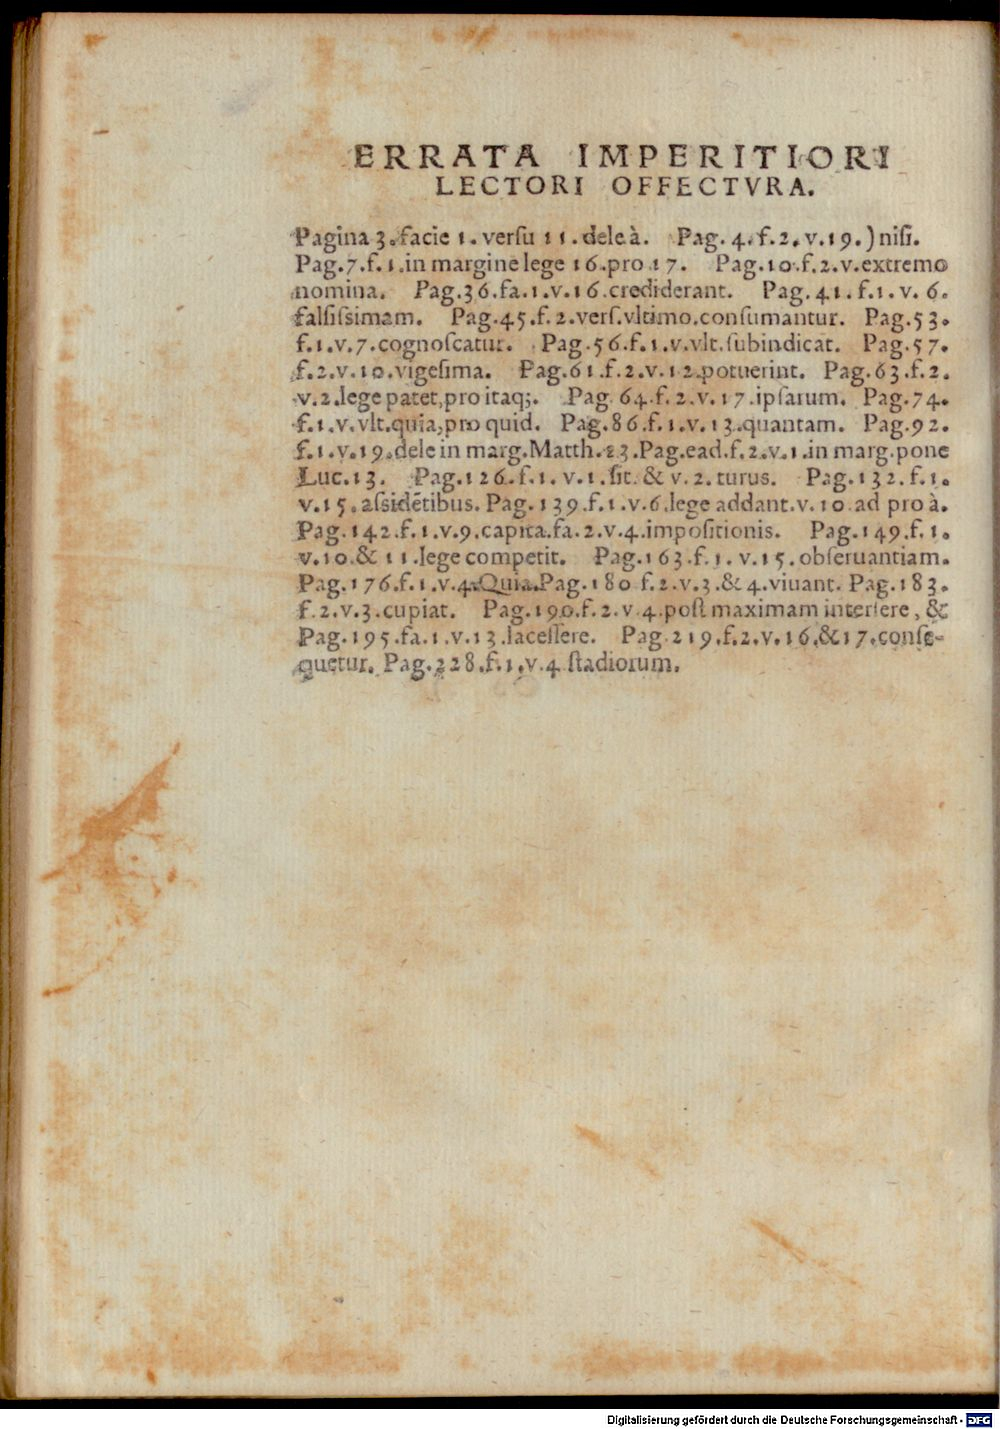 ERRATA IMPERITIORI
LECTORI OFFECTVRA.
Pagina 3. facie 1. versu 11. dele à. Pag. 4. f. 2. v. 19. ) nisi.
Pag. 7. f. 1. in margine lege 16. pro 17. Pag. 10. f. 2. v. extremo
nomina. Pag. 36. fa. 1. v. 16. crediderant. Pag. 41. f. 1. v. 6.
falsissimam. Pag. 45. f. 2. vers. vltimo. consumantur. Pag. 53.
f. 1. v. 7. cognoscatur. Pag. 56. f. 1. v. vlt. subindicat. Pag. 57.
f. 2. v. 10. vigesima. Pag. 61. f. 2. v. 12. potuerint. Pag. 63. f. 2.
v. 2. lege patet, pro itaq;. Pag. 64. f. 2. v. 17. ipsarum. Pag. 74.
f. 1. v. vlt. quia, pro quid. Pag. 86. f. 1. v. 13. quantam. Pag. 92.
f. 1. v. 19. dele in marg. Matth. 23. Pag. ead. f. 2. v. 1. in marg. pone
Luc. 13. Pag. 126. f. 1. v. 1. sit. & v. 2. turus. Pag. 132. f. 1.
v. 15. assidētibus. Pag. 139. f. 1. v. 6. lege addant. v. 10. ad pro à.
Pag. 142. f. 1. v. 9. capita. fa. 2. v. 4. impositionis. Pag. 149. f. 1.
v. 10. & 11. lege competit. Pag. 163. f. 1. v. 15. obseruantiam.
Pag. 176. f. 1. v. 4. Quia. Pag. 180 f. 2. v. 3. & 4. viuant. Pag. 183.
f. 2. v. 3. cupiat. Pag. 190. f. 2. v. 4. post maximam intersere, &
Pag. 195. fa. 1. v. 13. lacessere. Pag. 219. f. 2. v. 16. & 17. conse-
quetur. Pag. 228. f. 1. v. 4 stadiorum.
Digitalisierung gefördert durch die Deutsche Forschungsgemeinschaft - DFG